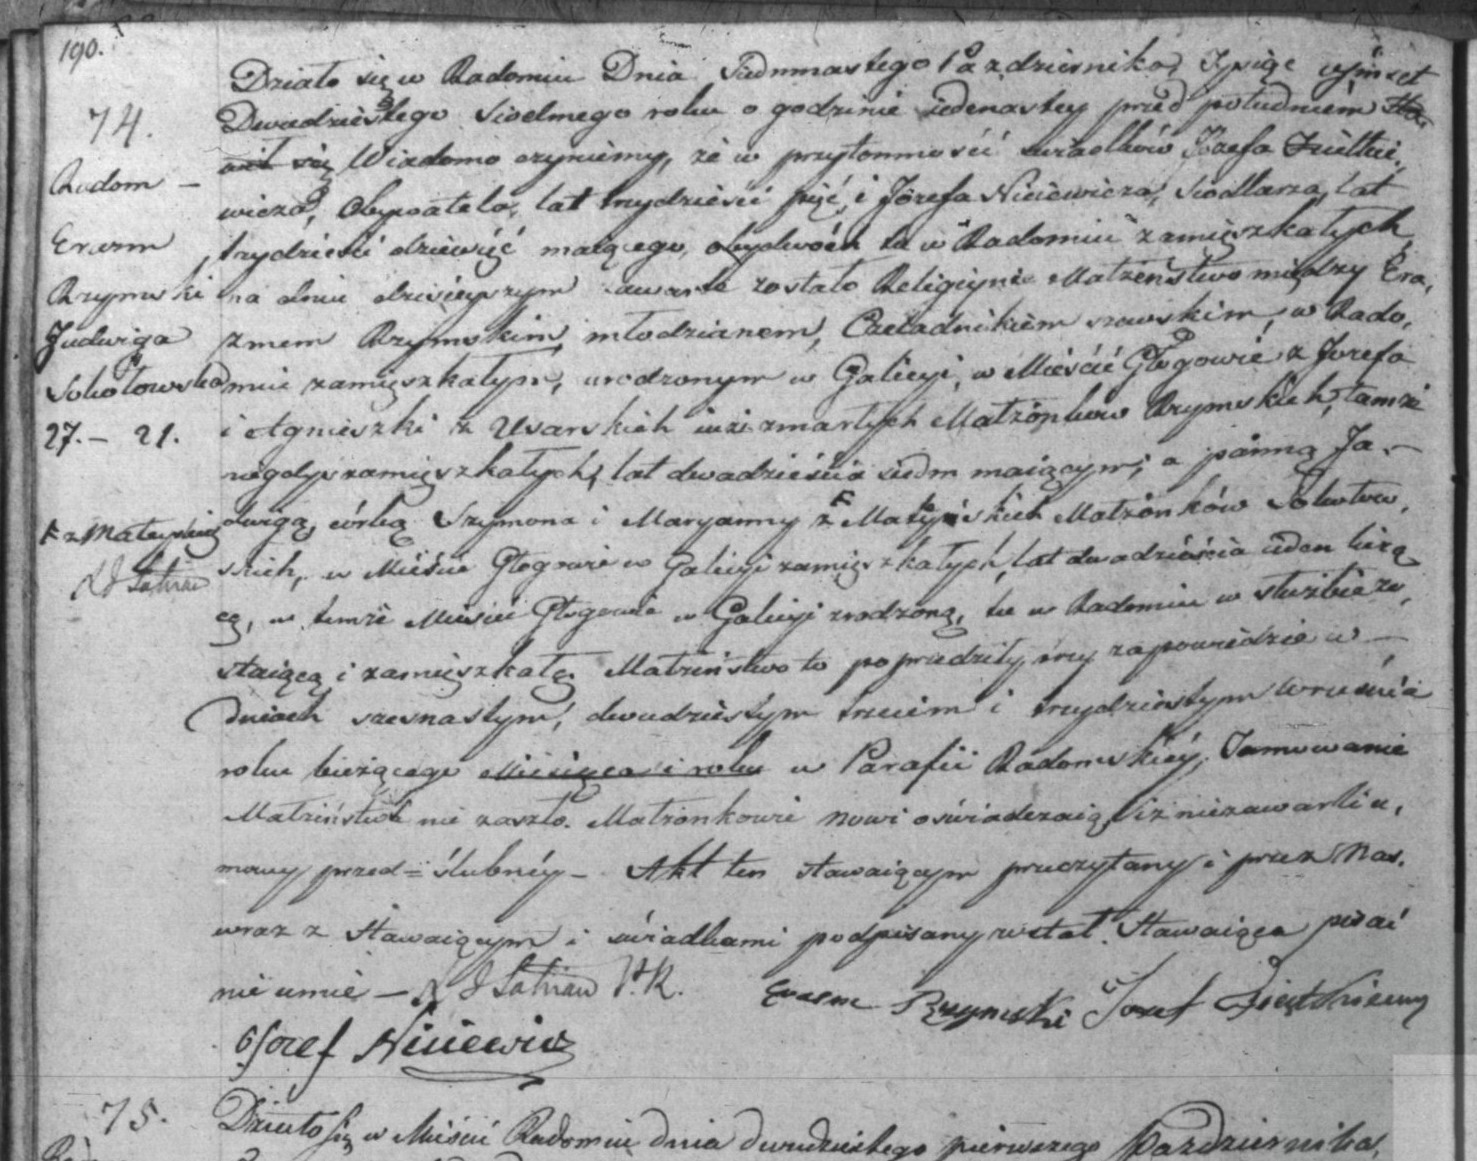 190.
74.
Radom —
Erazm
Rzymski
Jadwiga
Sokołowska
27. – 21.
z Matysków
Działo się w Radomiu Dnia Siedmnastego Października Tysiąc ośmset
Dwudziestego Siodmego roku o godzinie jedenastey przed południem Sta
wił się Wiadomo czyniemy, że w przytomności świadków Józefa
wicza, Obywatela, lat trzydzieści pięć, i Józefa Niciewicza, Siodlarza, lat
trzydzieści dziewięć maiącego, obydwóch tu w Radomiu zamięszkałych,
na dniu dzisieyszym zawarte zostało Religiyne Małżeństwo między Era,
zmem Rzymskim, młodzianem, Czeladnikiem szewskim, w Rado,
miu zamięszkałym, urodzonym w Galicyi, w Mieście Głogowie z Jozefa
i Agnieszki z Usarskich iuż zmarłych Małżonków Rzymskich, tamże
niegdyś zamięszkałych, lat dwadzieścia siedm maiącym; a panną Ja–
dwigą, córką Szymona i Maryanny z Małżonków Sokołow,
skich, w Mieście Głogowie w Galicyi zamięszkałych, lat dwadzieścia ieden liczą
cą, w temże Mieście Głogowie w Galicyi zrodzoną, tu w Radomiu w służbie zo,
staiącą i zamięszkałą. Małżeństwo to poprzedziły trzy zapowiedzie w —
Dniach szesnastym, dwudziestym trzecim i trzydziestym Września
roku bieżącego Miesiąca i roku w Parafii Radomskiéy, Tamowanie
Małżeństwa nie zaszło. Małżonkowie nowi oświadczaią, iż niezawarli u,
mowy przed = ślubnéy – Akt ten stawaiącym przeczytany i przez Nas.
wraz z Stawaiącym i świadkami podpisany został. Stawaiąca pisać
nie umie —
Erazm Rzymski Jozef
Jozef Niciewicz
75.
Działo się w Mieście Radomiu dnia dwudziestego pierwszego Października,